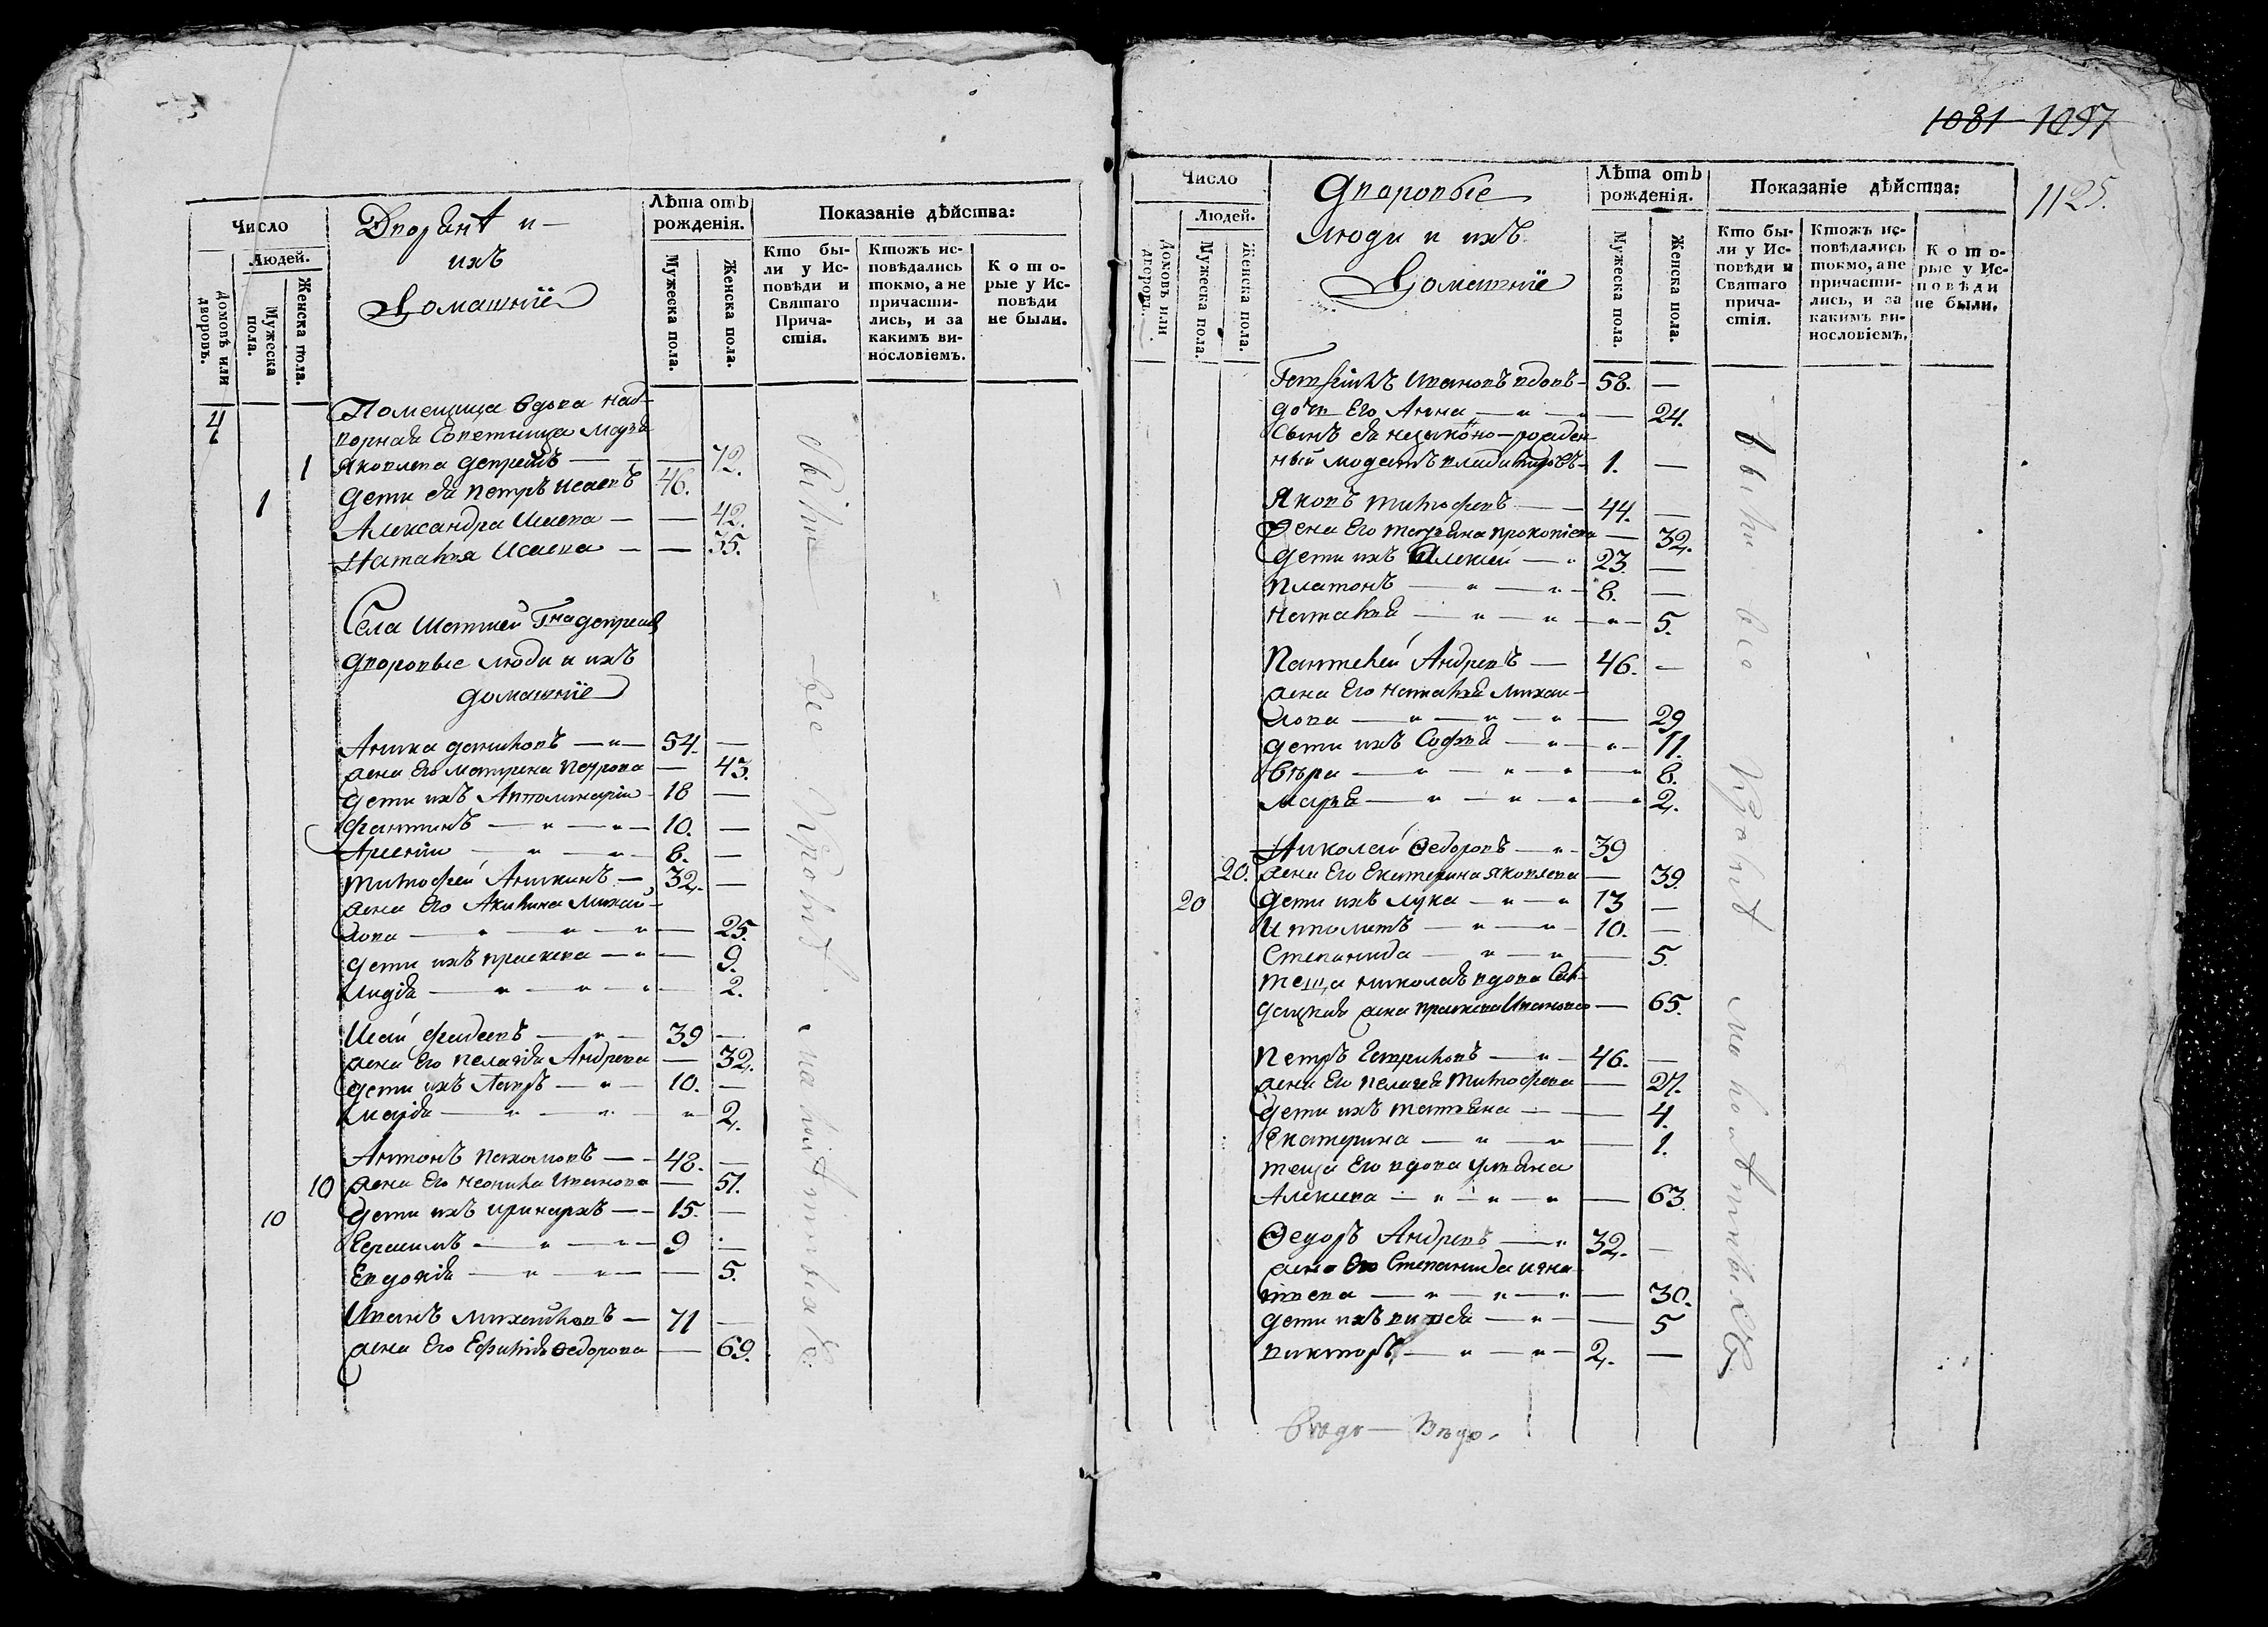 Число
Дворянѣ и
ихъ
Домашнїе
Лѣта отъ рожденія.
Показаніе дѣйства:
Людей.
Домовъ или дворовъ.
Мужеска пола.
Женска пола.
Мужеска пола.
Женска пола.
Кто бы-
ли у Ис-
повѣди и
Святаго
Прича-
стія.
Ктожъ ис-
повѣдались
токмо, а не
причасти-
лись, и за
какимъ ви-
нословіемъ.
Кото-
рые у Ис-
повѣди
не были.
4 Помещица вдова над-
ворная Советница Марья
1 Яковлева — 72.
1 дети ея Петръ Исаевъ 46.
Александра Исаева — — 42.
Наталья Исаева — — 35.
Села
дворовые люди и ихъ
домашнїе
Аника даниловъ — 54. —
жена Его матрена Петрова — 43.
дети ихъ Апполинарїи 18 —
фантинъ — 10. —
Арсенїи — 8. —
тимофей Аникинъ — 32. —
жена Его Акилина Михай-
лова — — 25.
дети ихъ праскева — — 9.
лидїя — — 2.
фадеевъ — 39 —
жена Его пелагїя Андреева — 32.
дети ихъ Лавръ — 10. —
марїя — 2.
Антонъ пахомовъ — 48. —
10 жена Его неонила Иванова — 51.
10 дети ихъ иринархъ — 15. —
Герасимъ — 9 —
Евдокїя — — 5.
Иванъ михайловъ — 71 —
жена Его Федорова — 69.
были все у
1081 1097
1125.
Число
Дворовые
люди и ихъ
Домашнїе
Лѣта отъ рожденія.
Показаніе дѣйства:
Людей.
Домовъ или дворовъ.
Мужеска пола.
Женска пола.
Мужеска пола.
Женска пола.
Кто бы-
ли у Ис-
повѣди и
Святаго
прича-
стія.
Ктожъ ис-
повѣдались
токмо, а не
причасти-
лись, и за
какимъ ви-
нословіемъ.
Кото-
рые у Ис-
повѣди
не были.
Ивановъ вдовъ — 58. —
дочь Его Анна — — 24.
Сынъ ея незаконо-рожден-
ный модестъ 1. —
Яковъ тимофеевъ — 44. —
жена Его татьяна прокопїева — 32.
дети ихъ Алексей — 23. —
платонъ — 8. —
наталья — 5.
Пантелей Андреевъ — 46. —
жена Его наталья михаи-
лова — — 29
дети ихъ Софья — — 11.
вѣра — — 8.
марья — — 2.
Николай Федоровъ — 39
20. жена Его Екатерина яковлева — 39.
20 дети ихъ лука — 13 —
Ипполитъ — 10. —
Степанида — — 5.
теща николая вдова Сол-
дацкая жена праскева Иванова — 65.
Петръ Гавриловъ — 46. —
жена Его пелагея тимофеева — 27.
дети ихъ татьяна — — 4.
Екатерина — — 1.
теща Его вдова ульяна
Алексеева — — 63.
Федоръ Андреевъ — 32. —
жена Его Степанида игна-
тьева — — 30.
дети ихъ — 5
викторъ — 2. —
были все